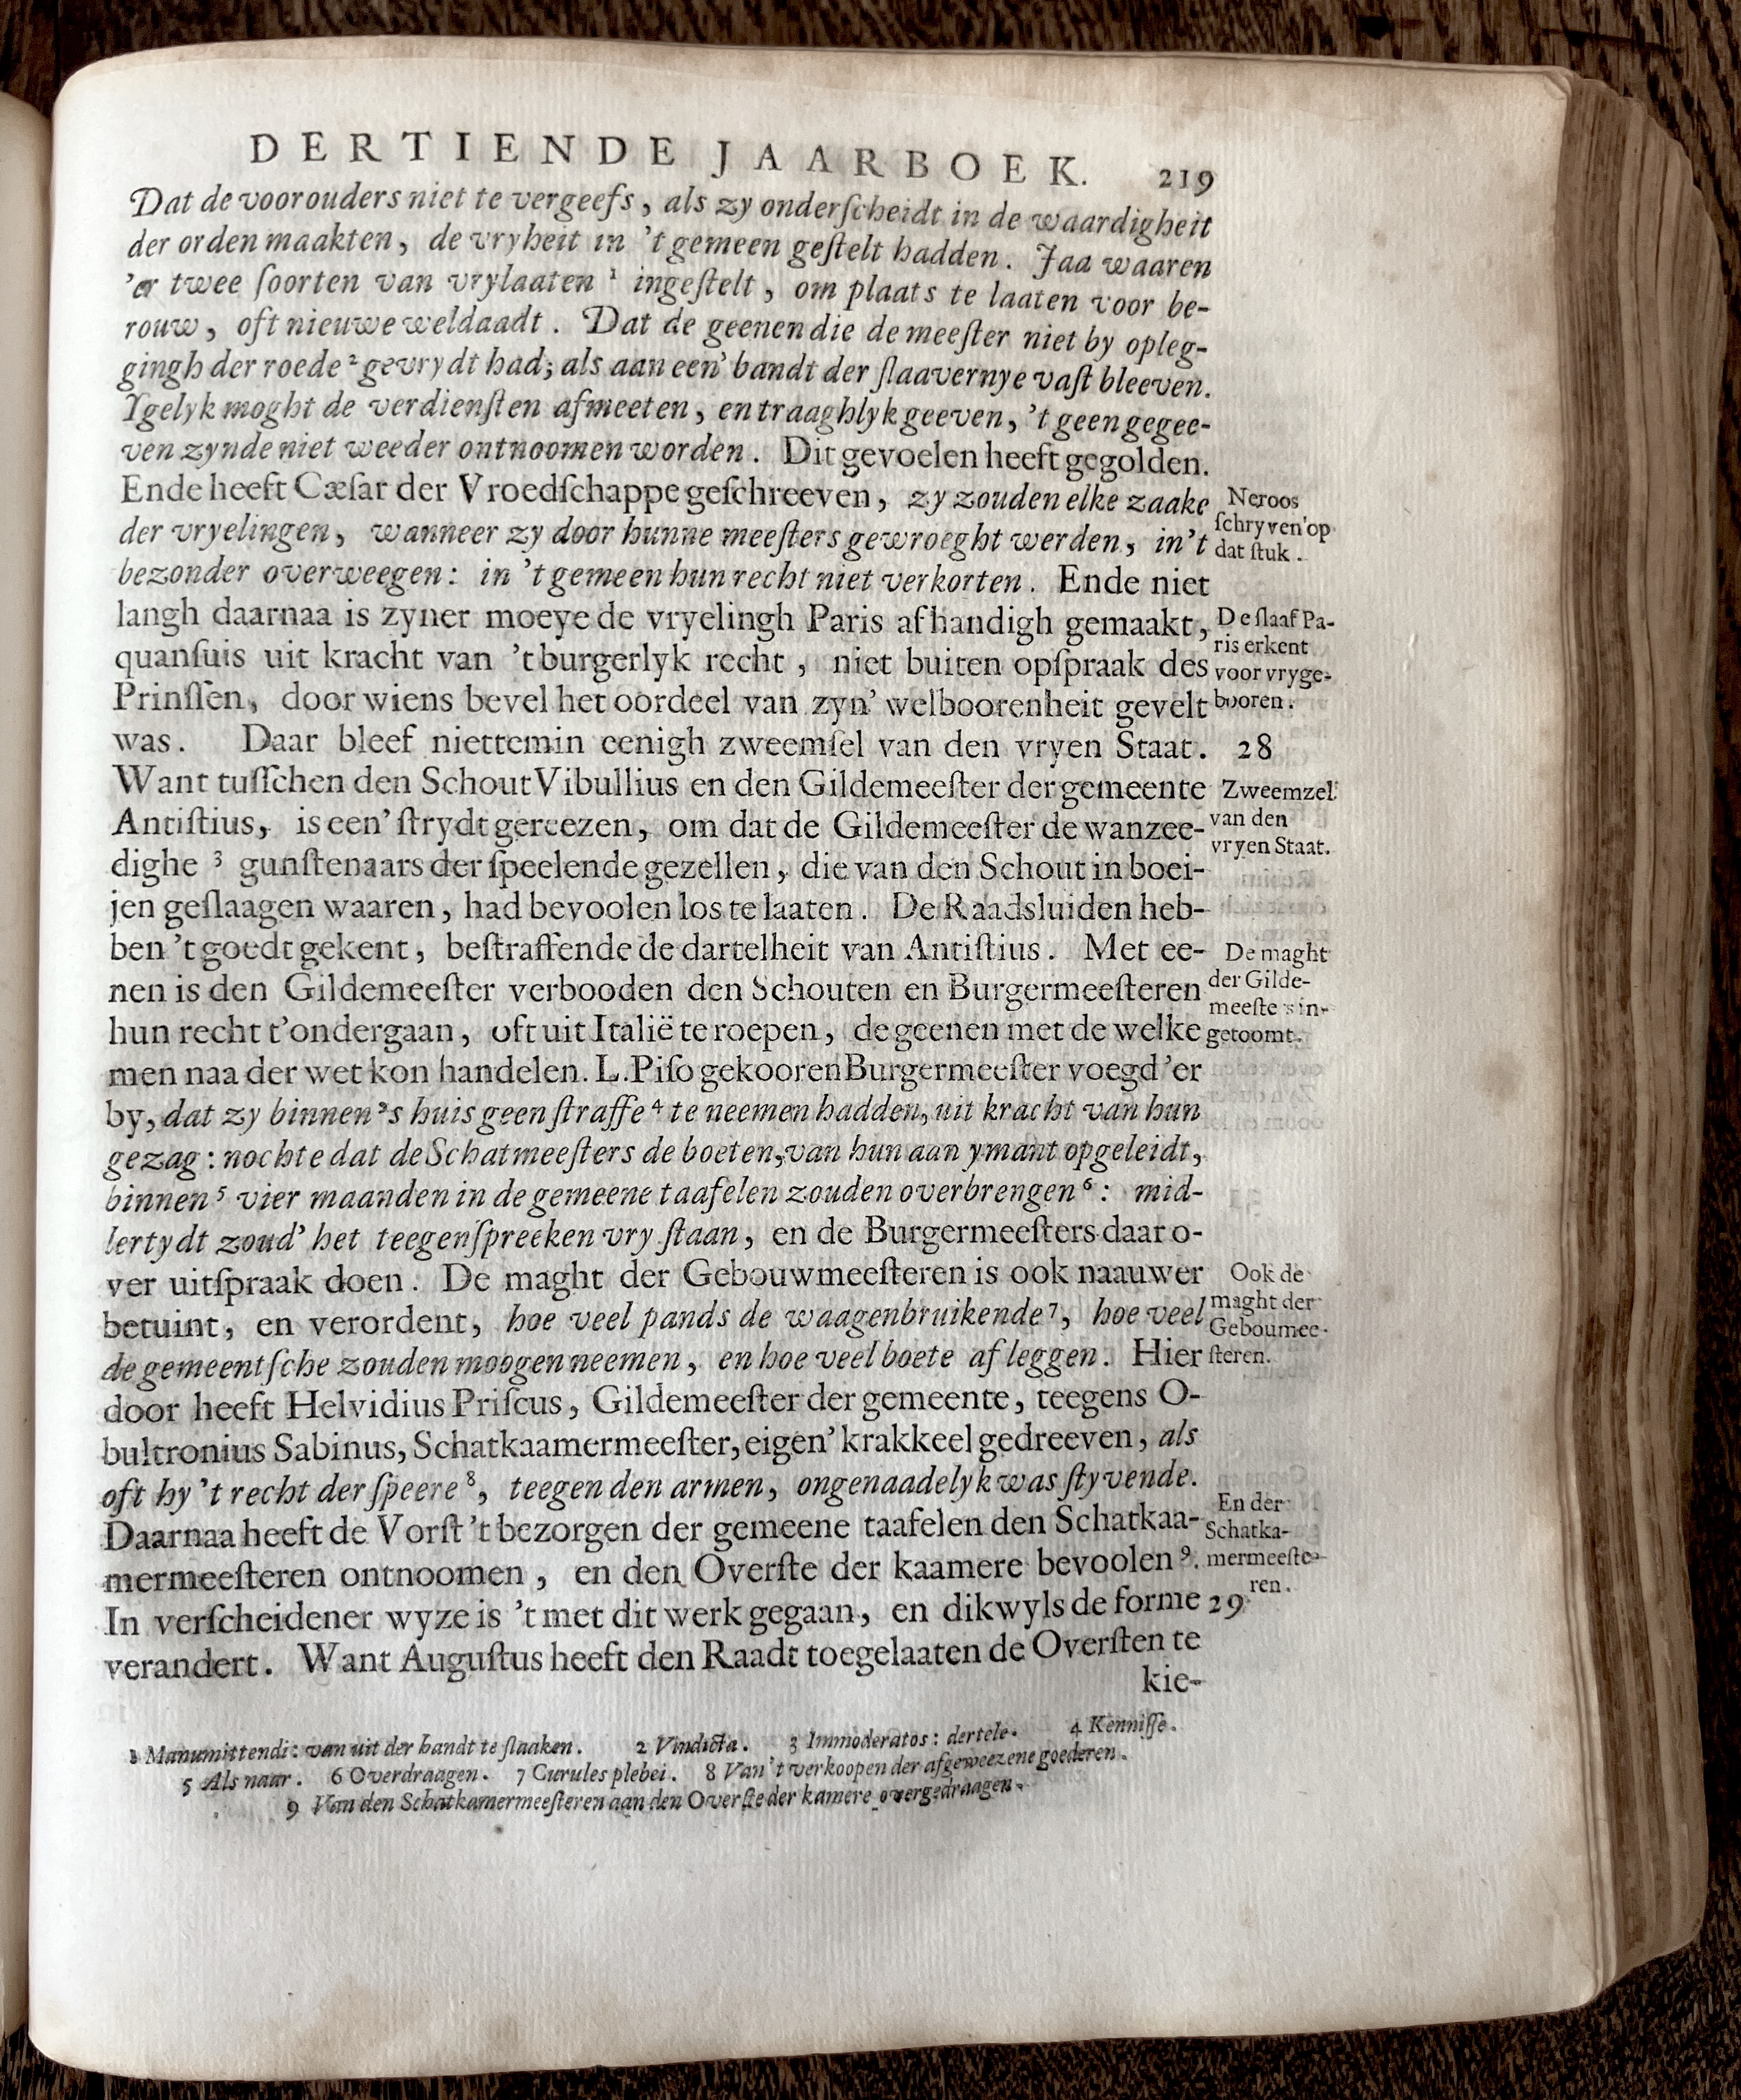 DERTIENDE JAARBOEK. 219
Dat de voorouders niet te vergeefs, als zy onderſcheidt in de waardigheit
der orden maakten, de vryheit in 't gemeen geſtelt hadden. Jaa waaren
'er twee ſoorten van vrylaaten ¹ ingeſtelt, om plaats te laaten voor be-
rouw, oft nieuwe weldaadt. Dat de geenen die de meeſter niet by opleg-
gingh der roede ² gevrydt had; als aan een' bandt der ſlaavernye vaſt bleeven.
Ygelyk moght de verdienſten afmeeten, en traaghlyk geeven, 't geen gegee-
ven zynde niet weeder ontnoomen worden. Dit gevoelen heeft gegolden.
Ende heeft Cæſar der Vroedſchappe geſchreeven, zy zouden elke zaake
der vryelingen, wanneer zy door hunne meeſters gewroeght werden, in't
bezonder overweegen: in 't gemeen hun recht niet verkorten. Ende niet
langh daarnaa is zyner moeye de vryelingh Paris afhandigh gemaakt,
quanſuis uit kracht van 't burgerlyk recht, niet buiten opſpraak des
Prinſſen, door wiens bevel het oordeel van zyn' welboorenheit gevelt
was. Daar bleef niettemin eenigh zweemſel van den vryen Staat.
Want tuſſchen den Schout Vibullius en den Gildemeeſter der gemeente
Antiſtius, is een' ſtrydt gereezen, om dat de Gildemeeſter de wanzee-
dighe ³ gunſtenaars der ſpeelende gezellen, die van den Schout in boei-
jen geſlaagen waaren, had bevoolen los te laaten. De Raadsluiden heb-
ben 't goedt gekent, beſtraffende de dartelheit van Antiſtius. Met ee-
nen is den Gildemeeſter verbooden den Schouten en Burgermeeſteren
hun recht t'ondergaan, oft uit Italië te roepen, de geenen met de welke
men naa der wet kon handelen. L. Piſo gekooren Burgermeeſter voegd 'er
by, dat zy binnen 's huis geen ſtraffe ⁴ te neemen hadden, uit kracht van hun
gezag: nochte dat de Schatmeeſters de boeten, van hun aan ymant opgeleidt,
binnen ⁵ vier maanden in de gemeene taafelen zouden overbrengen ⁶: mid-
lertydt zoud' het teegenſpreeken vry ſtaan, en de Burgermeeſters daar o-
ver uitſpraak doen. De maght der Gebouwmeeſteren is ook naauwer
betuint, en verordent, hoe veel pands de waagenbruikende ⁷, hoe veel
de gemeentſche zouden moogen neemen, en hoe veel boete afleggen. Hier
door heeft Helvidius Priſcus, Gildemeeſter der gemeente, teegens O-
bultronius Sabinus, Schatkaamermeeſter, eigen' krakkeel gedreeven, als
oft hy 't recht der ſpeere ⁸, teegen den armen, ongenaadelyk was ſtyvende.
Daarnaa heeft de Vorſt 't bezorgen der gemeene taafelen den Schatkaa-
mermeeſteren ontnoomen, en den Overſte der kaamere bevoolen ⁹.
In verſcheidener wyze is 't met dit werk gegaan, en dikwyls de forme
verandert. Want Auguſtus heeft den Raadt toegelaaten de Overſten te
kie-
Neroos
ſchryven op
dat ſtuk.
De ſlaaf Pa-
ris erkent
voor vryge-
booren.
28
Zweemzel
van den
vryen Staat.
De maght
der Gilde-
meeſters in-
getoomt.
Ook de
maght der
Geboumee-
ſteren.
En der
Schatka-
mermeeſte-
ren.
29
1 Manumittendi: van uit der handt te ſlaaken. 2 Vindicta. 3 Immoderatos: dertele. 4 Kenniſſe.
5 Als naar. 6 Overdraagen. 7 Curules plebei. 8 Van 't verkoopen der afgeweezene goederen.
9 Van den Schatkamermeeſteren aan den Overſte der kamere overgedraagen.